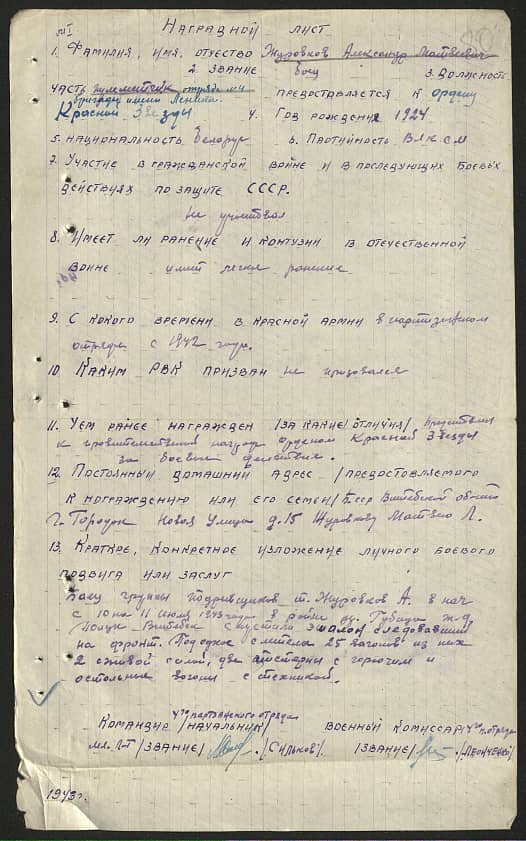 №1 НАГРАДНОЙ ЛИСТ
1. ФАМИЛИЯ, ИМЯ, ОТЧЕСТВО Журовков Александр Матвеевич
2. ЗВАНИЕ боец 3. ДОЛЖНОСТЬ,
ЧАСТЬ пулеметчик отряда №4 ПРЕДСТАВЛЯЕТСЯ К Ордену
бригады имени Ленина.
Красной Звезды 4. ГОД РОЖДЕНИЯ 1924
5. НАЦИОНАЛЬНОСТЬ Белорус 6. ПАРТИЙНОСТЬ ВЛКСМ
7. УЧАСТИЕ В ГРАЖДАНСКОЙ ВОЙНЕ И В ПОСЛЕДУЮЩИХ БОЕВЫХ
ДЕЙСТВИЯХ ПО ЗАЩИТЕ СССР.
не участвовал
8. ИМЕЕТ ЛИ РАНЕНИЕ И КОНТУЗИИ В ОТЕЧЕСТВЕННОЙ
ВОЙНЕ имеет легкое ранение
9. С КАКОГО ВРЕМЕНИ В КРАСНОЙ АРМИИ в партизанском
отряде с 1942 года.
10 КАКИМ РВК ПРИЗВАН не призовался
11. ЧЕМ РАНЕЕ НАГРАЖДЕН /ЗА КАКИЕ ОТЛИЧИЯ/
к правительственной награде Орденом Красной Звезды
за боевые действия.
12. ПОСТОЯННЫЙ ДОМАШНИЙ АДРЕС /ПРЕДОСТОВЛЯЕМОГО
К НОГРАЖДЕНИЮ ИЛИ ЕГО СЕМЬИ/ Бсср Витебской области
г. Городок Новая Улица д.15 Журовкову Матвею Л.
13. КРАТКОЕ, КОНКРЕТНОЕ ИЗЛОЖЕНИЕ ЛИЧНОГО БОЕВОГО
ПОДВИГА ИЛИ ЗАСЛУГ
Боец группы подрывщиков т. Журовков А. в ноч
с 10 на 11 июля 1943 года в районе ж.д.
Полоцк Витебск спустили эшалон следовавший
на фронт. Под откос слетела 25 вагонов из них
2 с живой силой, две цистерны с горючим и
остольные вагоны с техникой.
КОМАНДИР 4го партизанского отряда ВОЕННЫЙ КОМИССАР 4го п. отряда
/НАЧАЛЬНИК/
мл. л-т /ЗВАНИЕ/ /Сильков/. /ЗВАНИЕ/ /ЛЕОНЧЕНКО/
1943г.